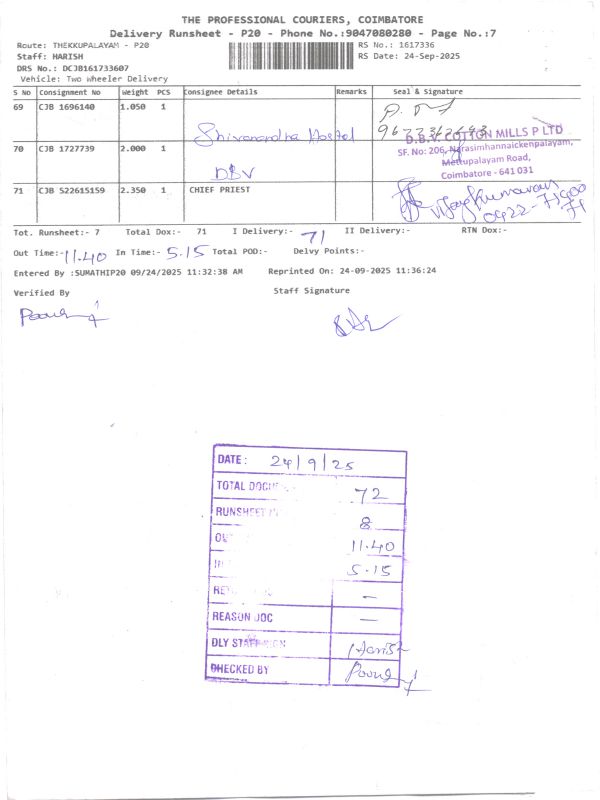 THE PROFESSIONAL COURIERS, COIMBATORE
Delivery Runsheet - P20 - Phone No.:9047080280 - Page No.:7
Route: THEKKUPALAYAM - P20 RS No.: 1617336
Staff: HARISH RS Date: 24-Sep-2025
DRS No.: DCJB161733607
Vehicle: Two Wheeler Delivery
S No Consignment No Weight PCS Consignee Details Remarks Seal & Signature
69 CJB 1696140 1.050 1
Shivanandha Hostel
70 CJB 1727739 2.000 1
DBV
D.B.V. COTTON MILLS P LTD
SF. No: 206, Narasimhannaickenpalayam,
Mettupalayam Road,
Coimbatore - 641 031
71 CJB 522615159 2.350 1 CHIEF PRIEST
Vijayakumaran
0422-71900
71
Tot. Runsheet:- 7 Total Dox:- 71 I Delivery:- 71 II Delivery:- RTN Dox:-
Out Time:- 11.40 In Time:- 5.15 Total POD:- Delvy Points:-
Entered By :SUMATHIP20 09/24/2025 11:32:38 AM Reprinted On: 24-09-2025 11:36:24
Verified By Staff Signature
DATE: 24/9/25
TOTAL DOCU 72
RUNSHEET 8
OU 11.40
5.15
RE —
REASON DOC —
DLY STAFF SIGN Harish
CHECKED BY